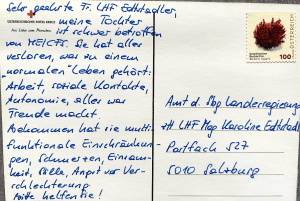 Sehr geehrte Fr. LHF Edtstadler
ÖSTERREICHISCHES ROTES KREUZ
Aus Liebe zum Menschen.
meine Tochter
ist schwer betroffen
von ME/CFS. Sie hat alles
verloren, was zu einem
„normalen" Leben gehört:
Arbeit, soziale Kontakte,
Autonomie, alles was
Freude macht.
Bekommen hat sie multi-
funktionale Einschränkun-
gen, Schmerzen, Einsam-
keit, Angst vor Ver-
schlechterung.
Bitte helfen Sie!
100
ÖSTERREICH
Amt d. Sbg Landesregierung
zH LHF Mag Karoline Edtstadler
Postfach 527
5010 Salzburg